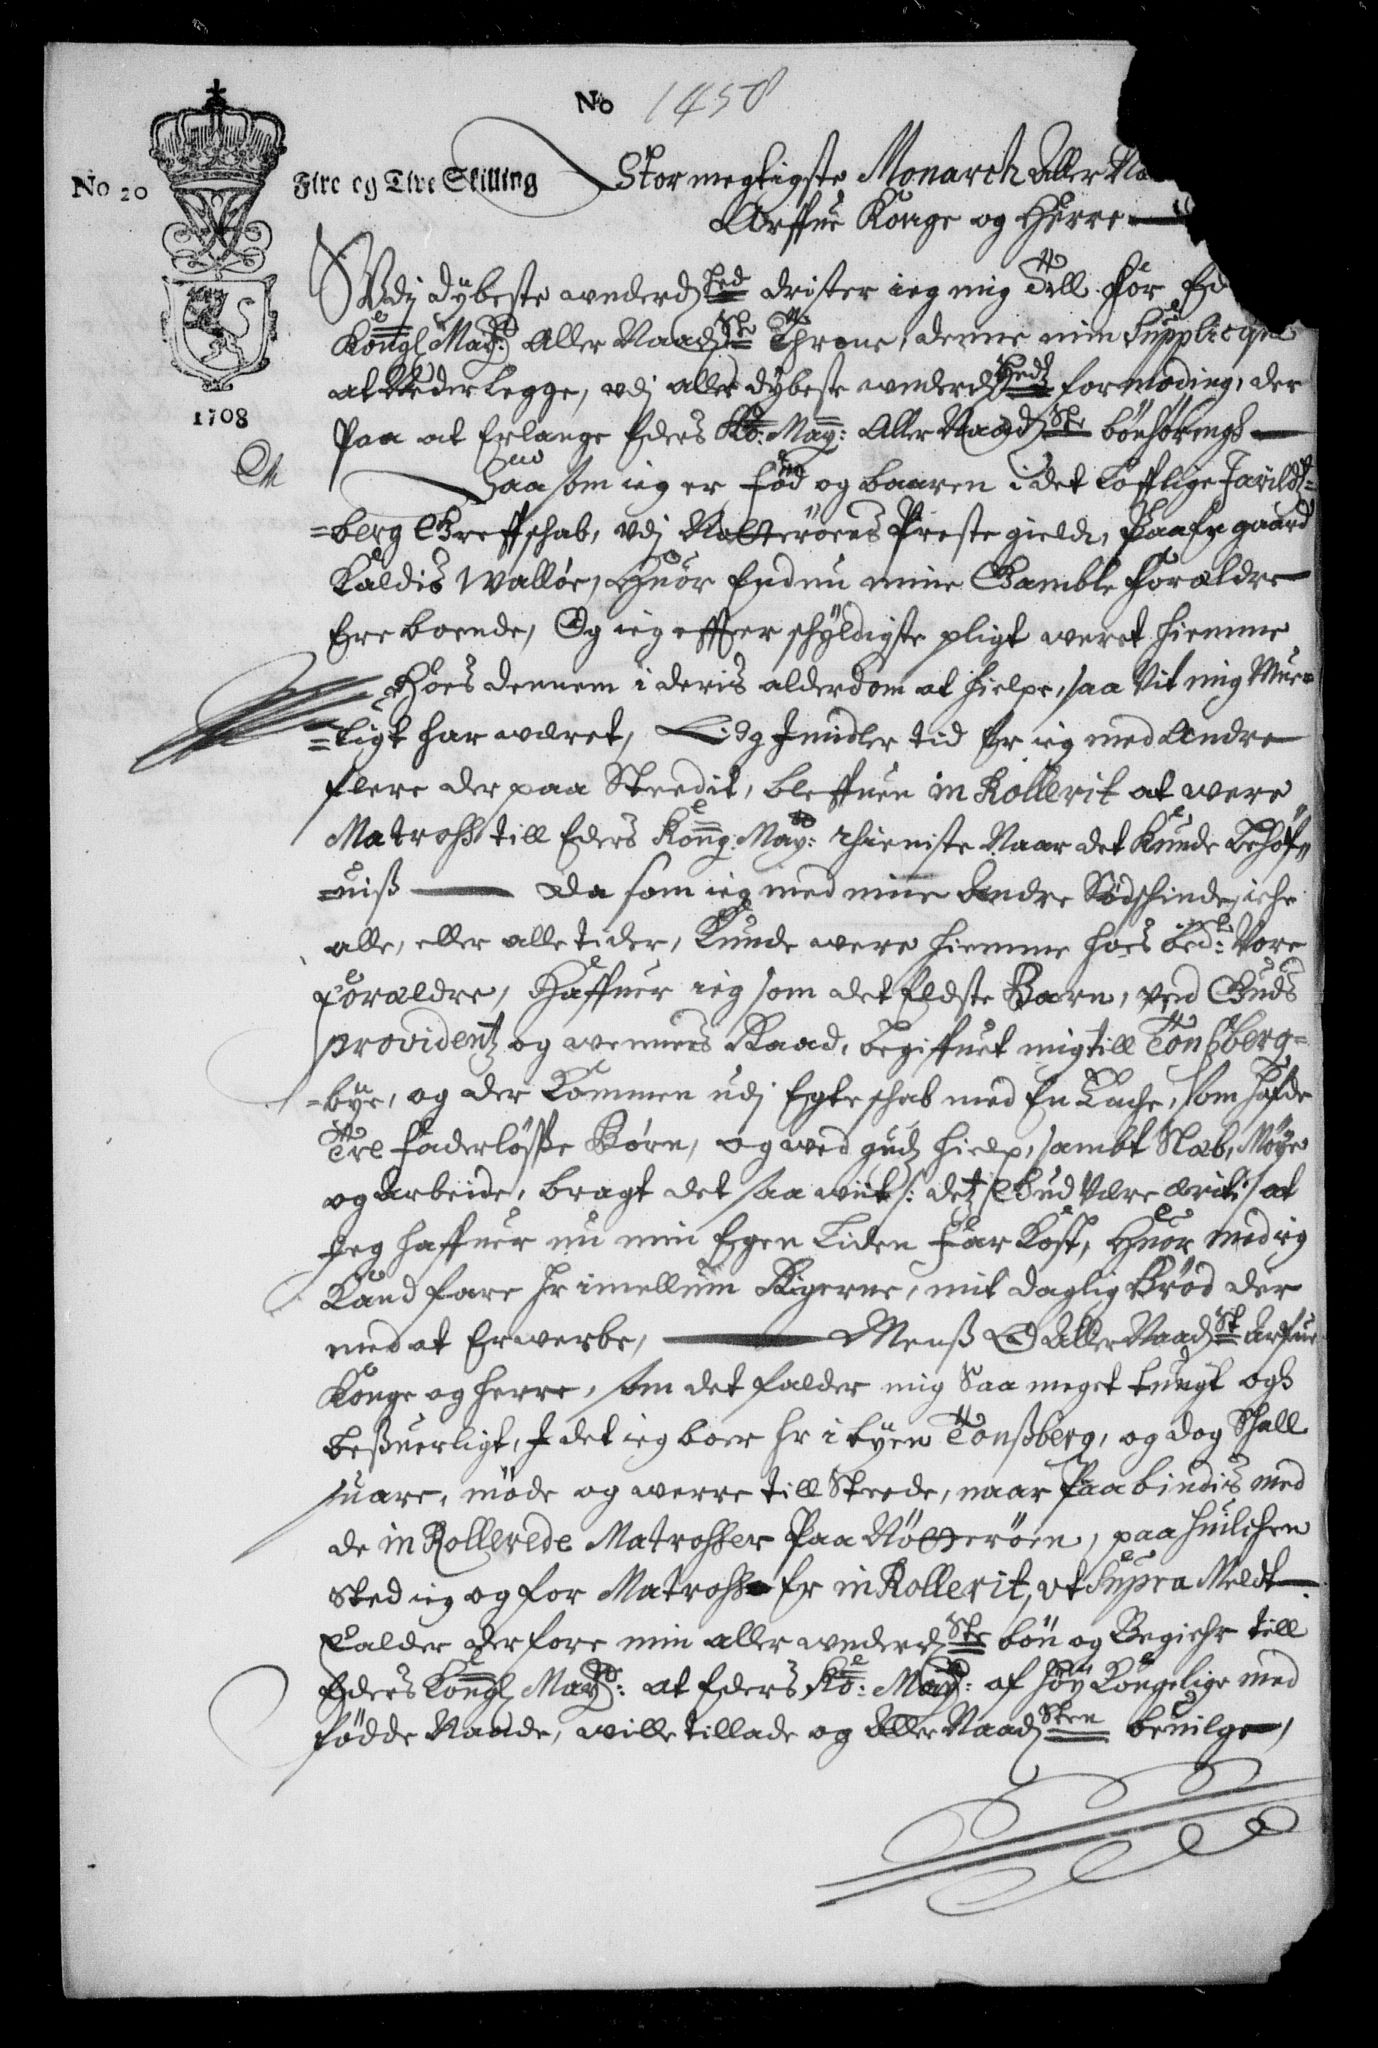 No 1458
No 20 Fire og Tive Skilling
Stormegtigste Monarch Aller Na
Arffue Konge og Herre
1708
Vdj dybeste underd: hed drister ieg mig Till for Ed
Kongl May: Aller Naad: ste Throne, denne min Supplicque
at Nederlegge, vdj aller dybeste underd: hed formoding, der
Paa at Erlange Eders Ko: May: Aller Naad: ste bönhörengh
Saasom ieg er Föd og baaren i det Löfflige Jarildz=
=berg Greffschab, vdj Nøtterøens Preste gield, Paa En gaard
Kaldis Walløe, Huor Endnu mine Gamble Forældre
Ere boende, Og ieg effter schyldigste pligt weret hiemme
Hoes dennem i deris alderdom at hielpe, saa Vit mig Mue=
=ligt har weret, Og Imidler tid Er ieg med Andre
flere der paa Steedit, bleffuen in Rollerit at were
Matrohs till Eders Kong: May: thieniste Naar det Kunde Behöf=
=uis Da som ieg med mine Andre Sødschinde, iche
alle, eller alle tider, Kunde were hiemme hoes bed: te Vore
Forældre, Haffuer ieg som det Eldste Barn, ved Guds
providentz og venners Raad, begiffuet mig till Tønsberg=
=bye, og der Kommen udj Egteschab med En Enche, som hafde
Tre Faderløsse Børn, og ved gudz hielp, sambt Slæb, Møye
og Arbeide, bragt det saa wiit /: detz Gud Være ærit :/ at
Jeg haffuer nu min Egen Liden Far Kost, Huor med ieg
Kand fare Hr imellum Rigerne, mit daglig Brød der
med at Erwerbe, Menß O Aller Naad: ste Arfue
Konge og Herre, som det falder mig Saa meget tungt ogh
beßuerligt, I det ieg boer hr i byen Tonßberg, og dog Skall
suare, möde og werre till Steede, naar Paabindis med
de in Rollerede Matrohser Paa Nötterøen, paa huilchen
Sted ieg og for Matrohs Er in Rollerit, vt Supra Meldt
Falder derfore min aller underd: ste bön og Begiehr till
Eders Kongl May: at Eders Ko: May: af höy Kongelige med
födde Naade, wille tillade og Aller Naad: sten beuilge,